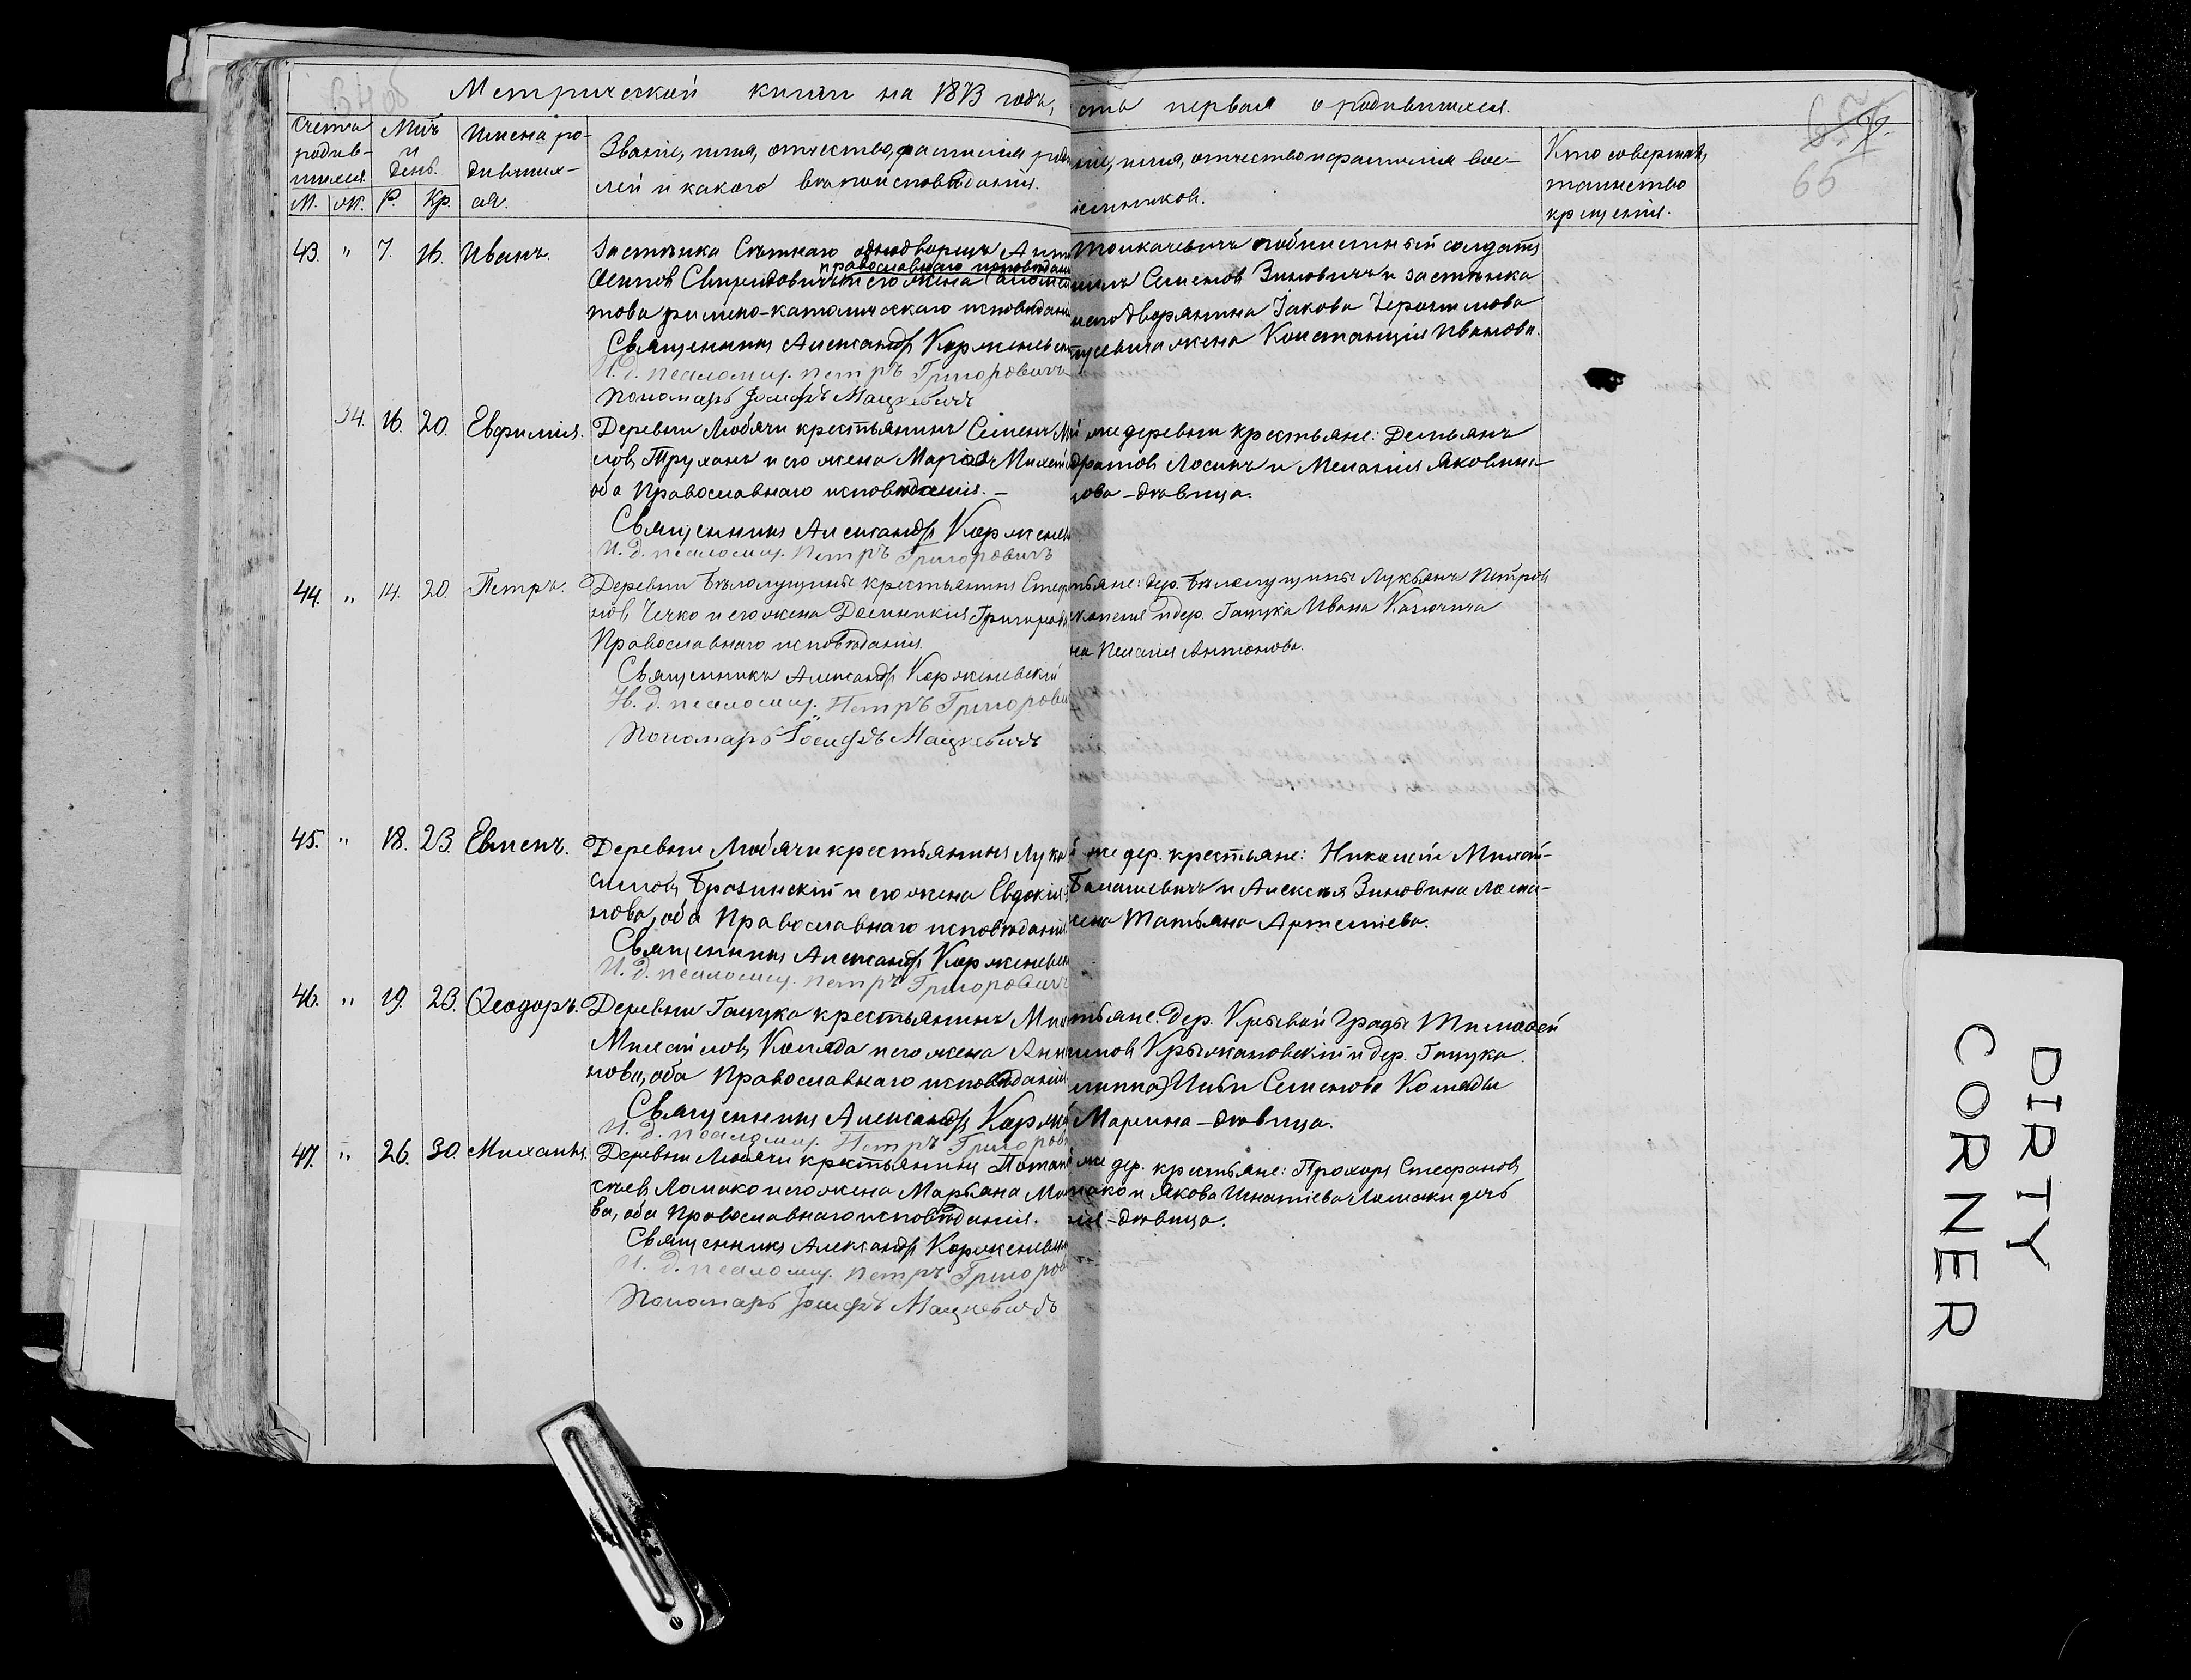 Метрической книги на 1873 годъ,
сть первая о родившихся.
64об
65
Счетъ родив-шихся.
М. Ж.
М-цъ и день.
Р. Кр.
Имена ро-дивших-ся.
Званіе, имя, отчество, фамилія роди
лей и какого вѣроисповѣданія.
ніе, имя, отчество и фамилія вос-
іемниковъ.
Кто совершалъ
таинство
крещенія.
43. " 7. 16. Иванъ.
Застѣнка однодворецъ
православнаго исповѣдан
Осиповъ и его жена
това римско-католическаго исповѣдані
Священникъ Александръ Корженевск
И. д. псаломщ. Петръ Григоровичъ
Пономарь Іосифъ Мацкевичъ
солдатъ
Семеновъ Зиновичъ и застѣнка
дворянина Іакова
жена Констанція Иванова.
34. 16. 20. Евфимія.
Деревни Любячи крестьянинъ Семенъ М
ловъ Труханъ и его жена Марія Михай
оба Православнаго исповѣданія. —
Священникъ Александръ Коржене
И. д. псаломщ. Петръ Григоровичъ
й же деревни крестьяне: Демьянъ
дратовъ Лосикъ и Меланія Яковлева
лова – дѣвица.
44. " 14. 20. Петръ.
Деревни Бѣлолущины крестьянинъ Стеф
новъ Чечко и его жена Домникія Григорьев
Православнаго исповѣданія
Священникъ Александръ Корженевскій
И. д. псаломщ. Петръ Григорови
Пономарь Іосифъ Мацкевичъ
тьяне: дер. Бѣлолущины Лукьянъ Петровъ
и дер. Гацука Ивана Казючица
на Пелагія Антонова.
45. " 18. 23. Евменъ.
Деревни Любячи крестьянинъ Лука
симовъ Бразинскій и его жена Евдокія
нова, оба Православнаго исповѣданія.
Священникъ Александръ Корженевск
И. д. псаломщ. Петръ Григоровичъ
й же дер. крестьяне: Николай Михай-
Балашевичъ и Алексѣя Зиновина Лома-
жена Татьяна Артеміева.
46. " 19. 23. Ѳеодоръ.
Деревни Гацука крестьянинъ Ми
Михайловъ Коляда и его жена Анн
нова, оба Православнаго исповѣданія.
Священникъ Александръ Корже
И. д. псаломщ. Петръ Григоров
тьяне: дер. Кривой Гряды Тимофей
имовъ Крыжановскій и дер. Гацука
Ильи Семенова Коляды
Марина – дѣвица.
47. " 26. 30. Михаилъ.
Деревни Любячи крестьянинъ Потап
сѣевъ Ломако и его жена Марьяна Ма
ва, оба Православнаго исповѣданія.
Священникъ Александръ Корженевск
И. д. псаломщ. Петръ Григоров
Пономарь Іосифъ Мацкевичъ
же дер. крестьяне: Прохоръ Стефановъ
мако и Якова Игнатіева Ломаки дочь
лія – дѣвица.
DIRTY
CORNER